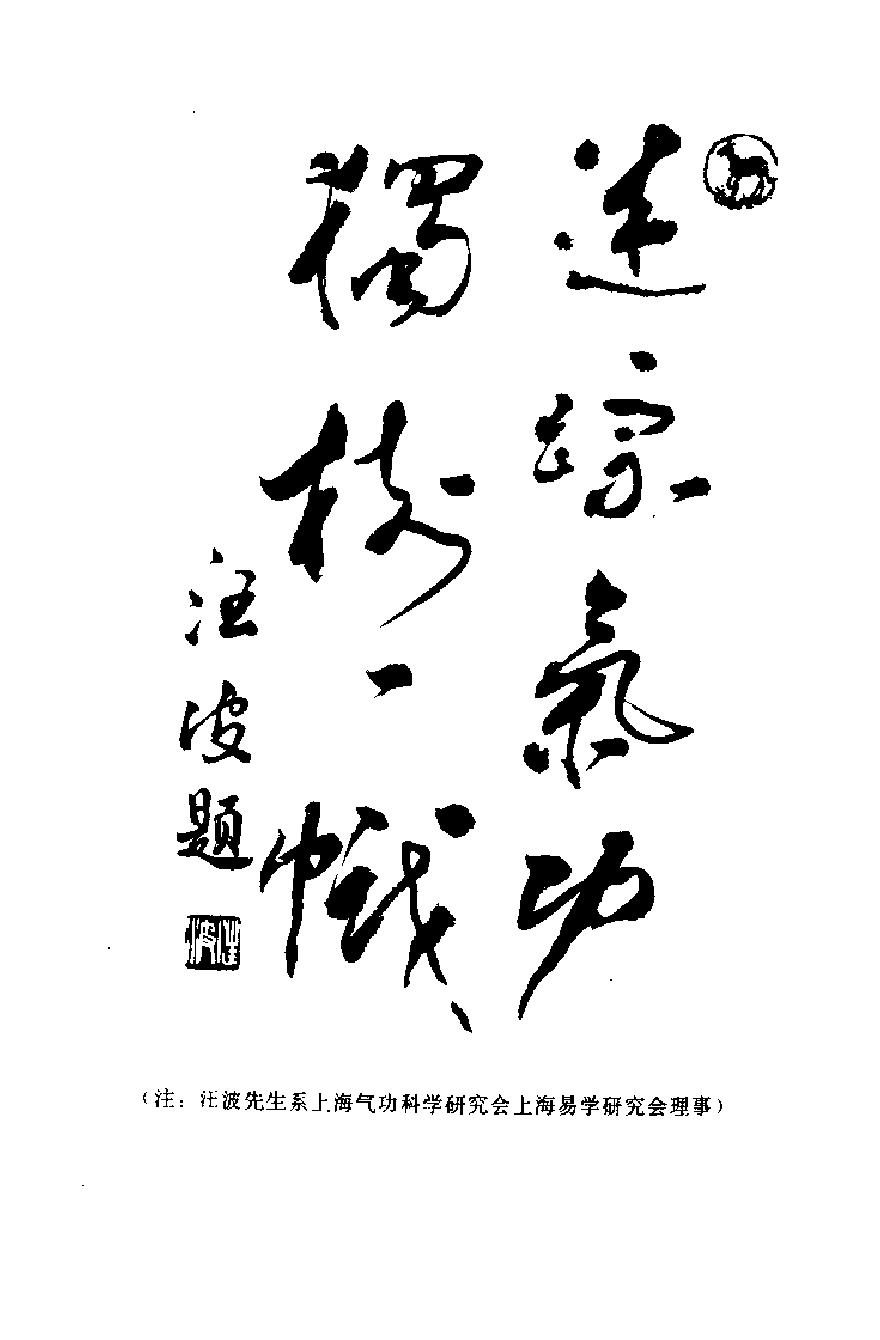 迷踪氣功
獨樹一幟
汪波題
汪波
（注：汪波先生系上海气功科学研究会上海易学研究会理事）